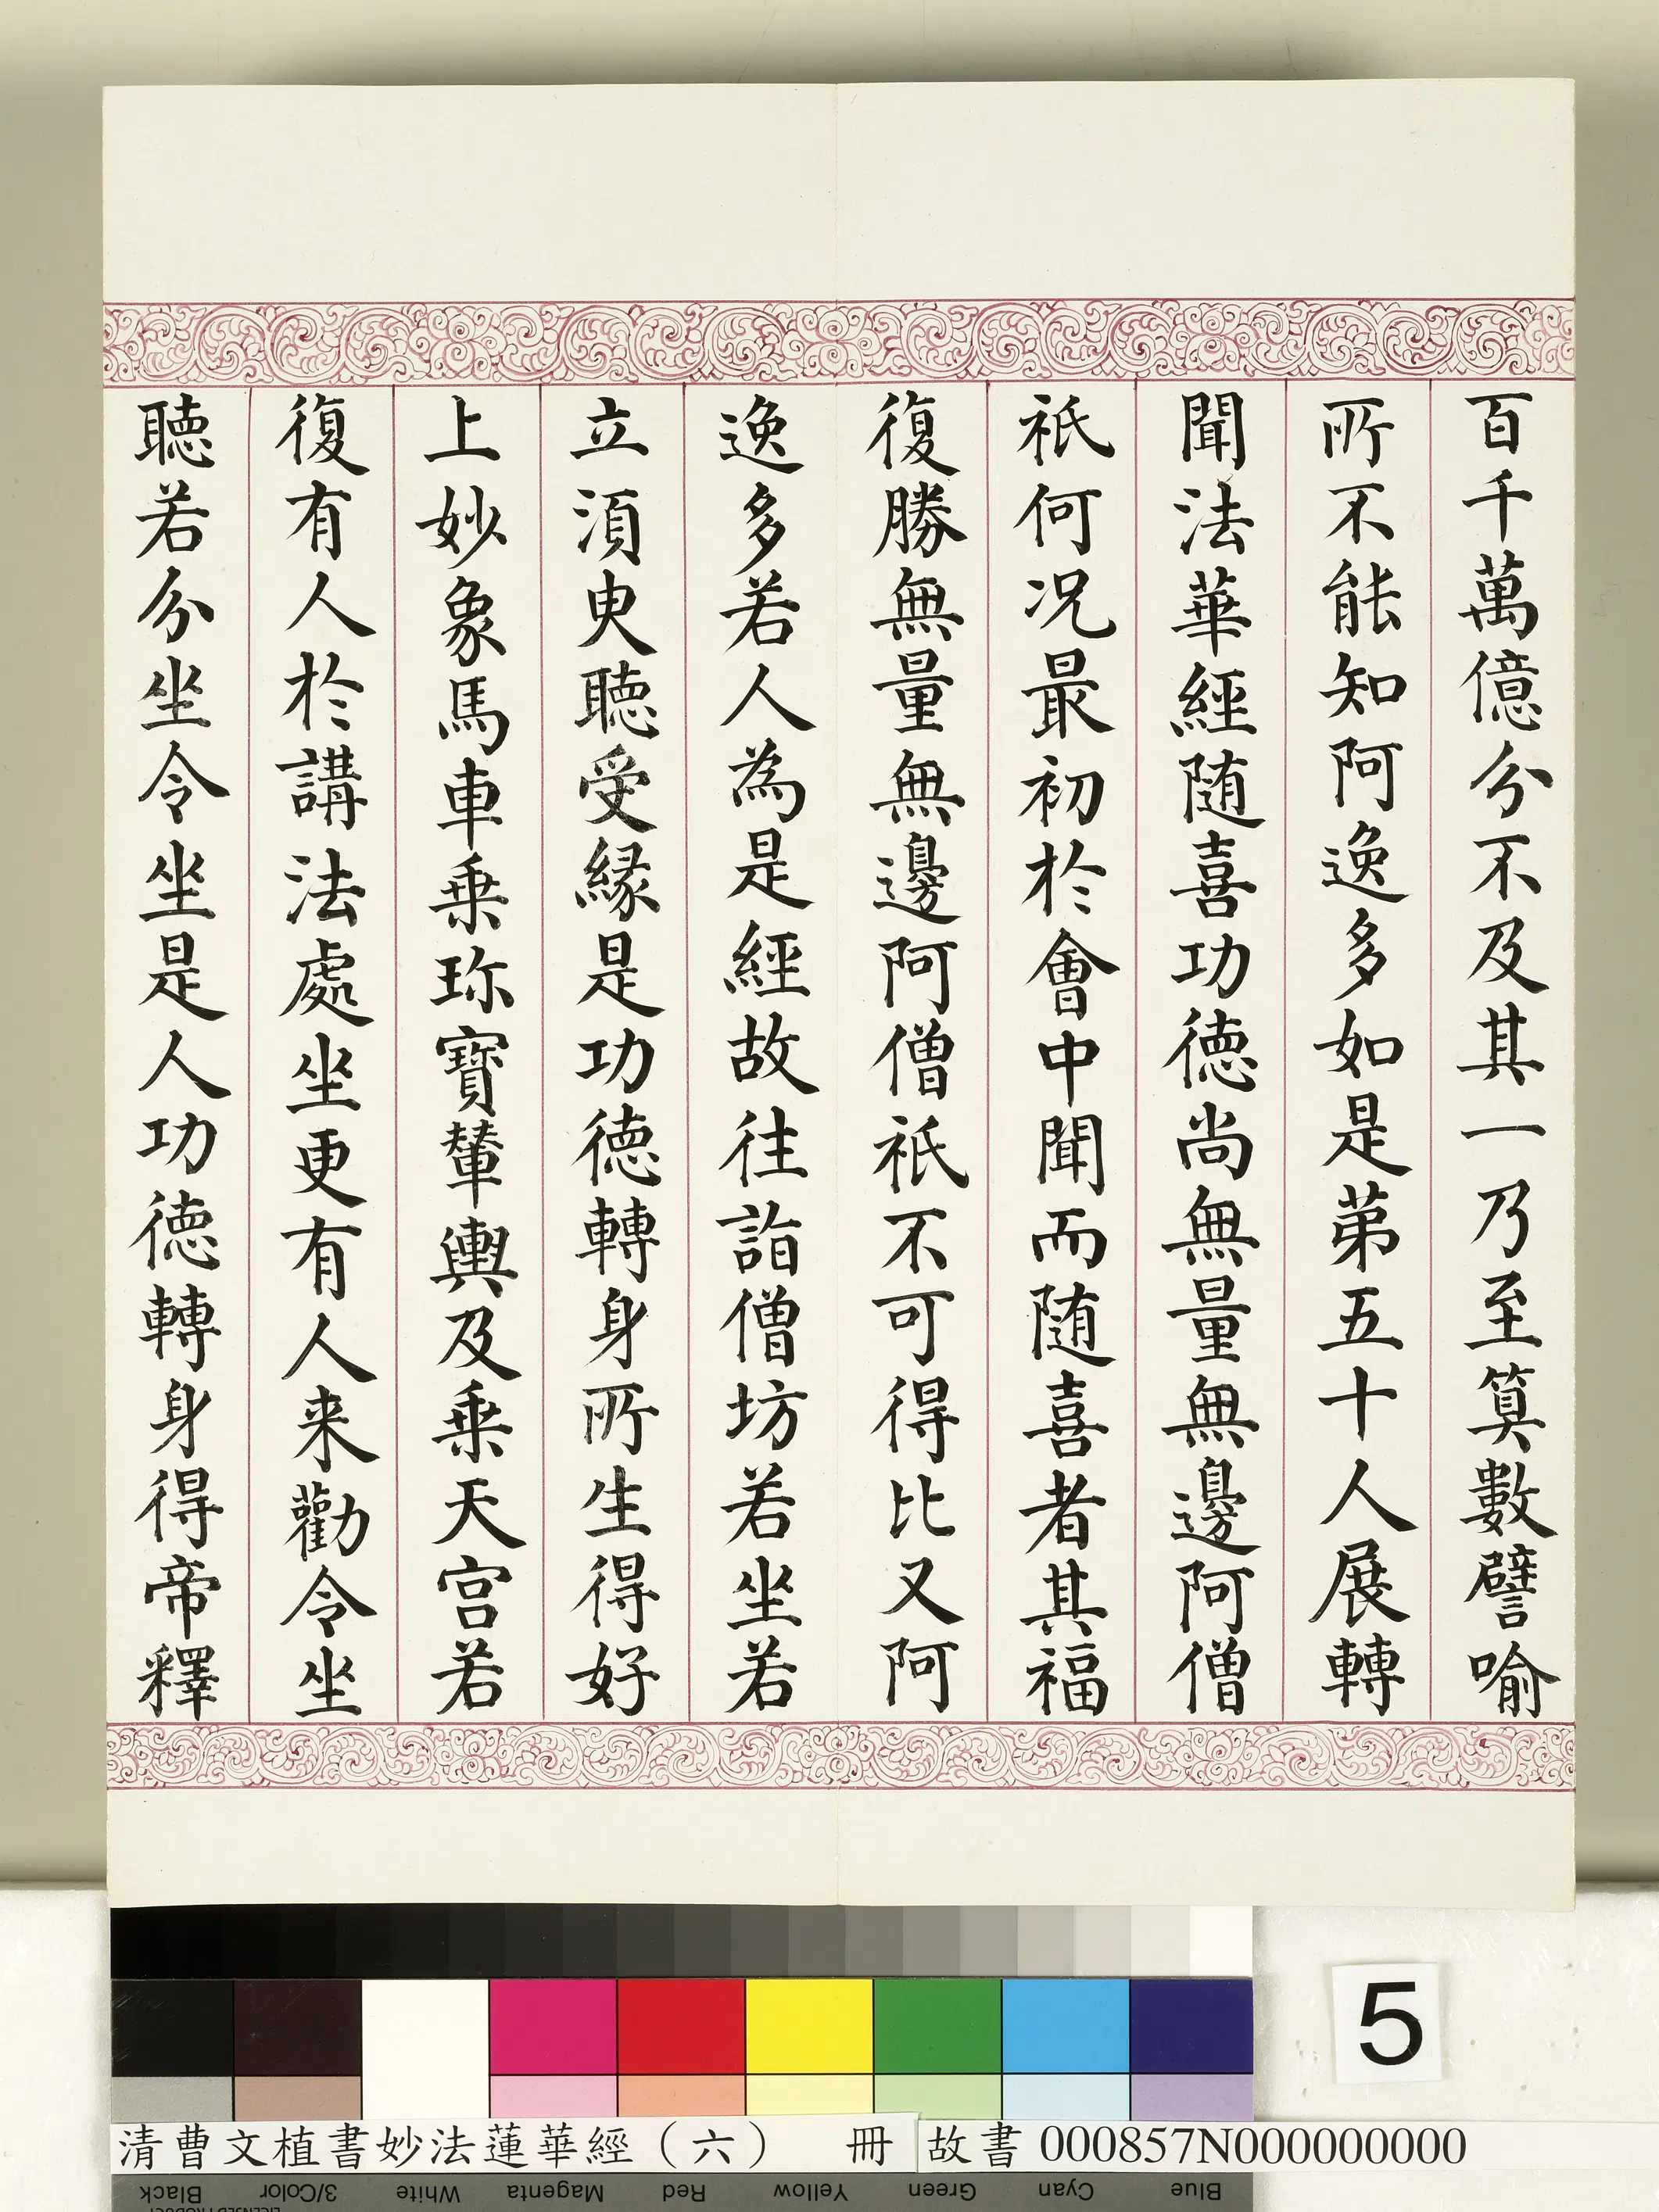 百千萬億分不及其一乃至算數譬喻
所不能知阿逸多如是第五十人展轉
聞法華經随喜功德尚無量無邊阿僧
祇何况最初於會中聞而随喜者其福
復勝無量無邊阿僧祇不可得比又阿
逸多若人為是經故往詣僧坊若坐若
立須臾聽受緣是功德轉身所生得好
上妙象馬車乗珎寶輦輿及乗天宫若
復有人於講法處坐更有人来勸令坐
聽若分坐令坐是人功德轉身得帝釋
5
清曹文植書妙法蓮華經（六） 冊 故書 000857N000000000
Black 3/Color White Magenta Red Yellow Green Cyan Blue